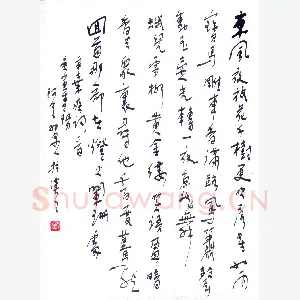 東風夜放花千樹更吹落星如雨
寶馬雕車香滿路鳳簫聲
動玉壺光轉一夜魚龍舞
蛾兒雪柳黃金縷笑語盈暗
香去眾裏尋他千百度驀然
回首那人卻在燈火闌珊處
辛棄疾詞一首
庚寅
Shufawang.CN